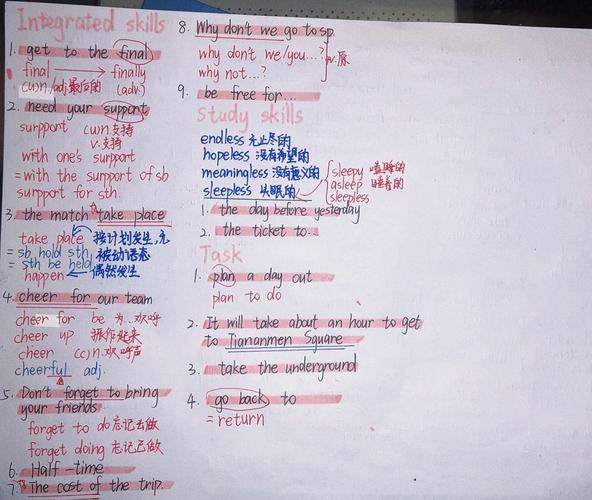 Integrated skills
1. get to the final
final → finally
cu)n./adj.最后的 (adv.)
2. need your support
surpport cu)n支持
v.支持
with one's surpport
= with the support of sb
surpport for sth.
3. the match take place
take place 按计划发生,无
= sb hold sth. 被动语态
= sth be held
happen ← 偶然发生
4. cheer for our team
cheer for be 为...欢呼
cheer up 振作起来
cheer cc)n.欢呼声
cheerful adj.
5. Don't forget to bring
your friends
forget to do 忘记去做
forget doing 忘记已做
6. Half-time
7. The cost of the trip.
8. Why don't we go to sp.
why don't we/you...? v.原
why not...?
9. be free for...
Study skills
endless 无止尽的
hopeless 没有希望的
meaningless 没有意义的
sleepless 失眠的
sleepy 瞌睡的
asleep 睡着的
sleepless
1. the day before yesterday
2. the ticket to...
Task
1. plan a day out
plan to do
2. It will take about an hour to get
to Tiananmen Square
3. take the underground
4. go back to
= return